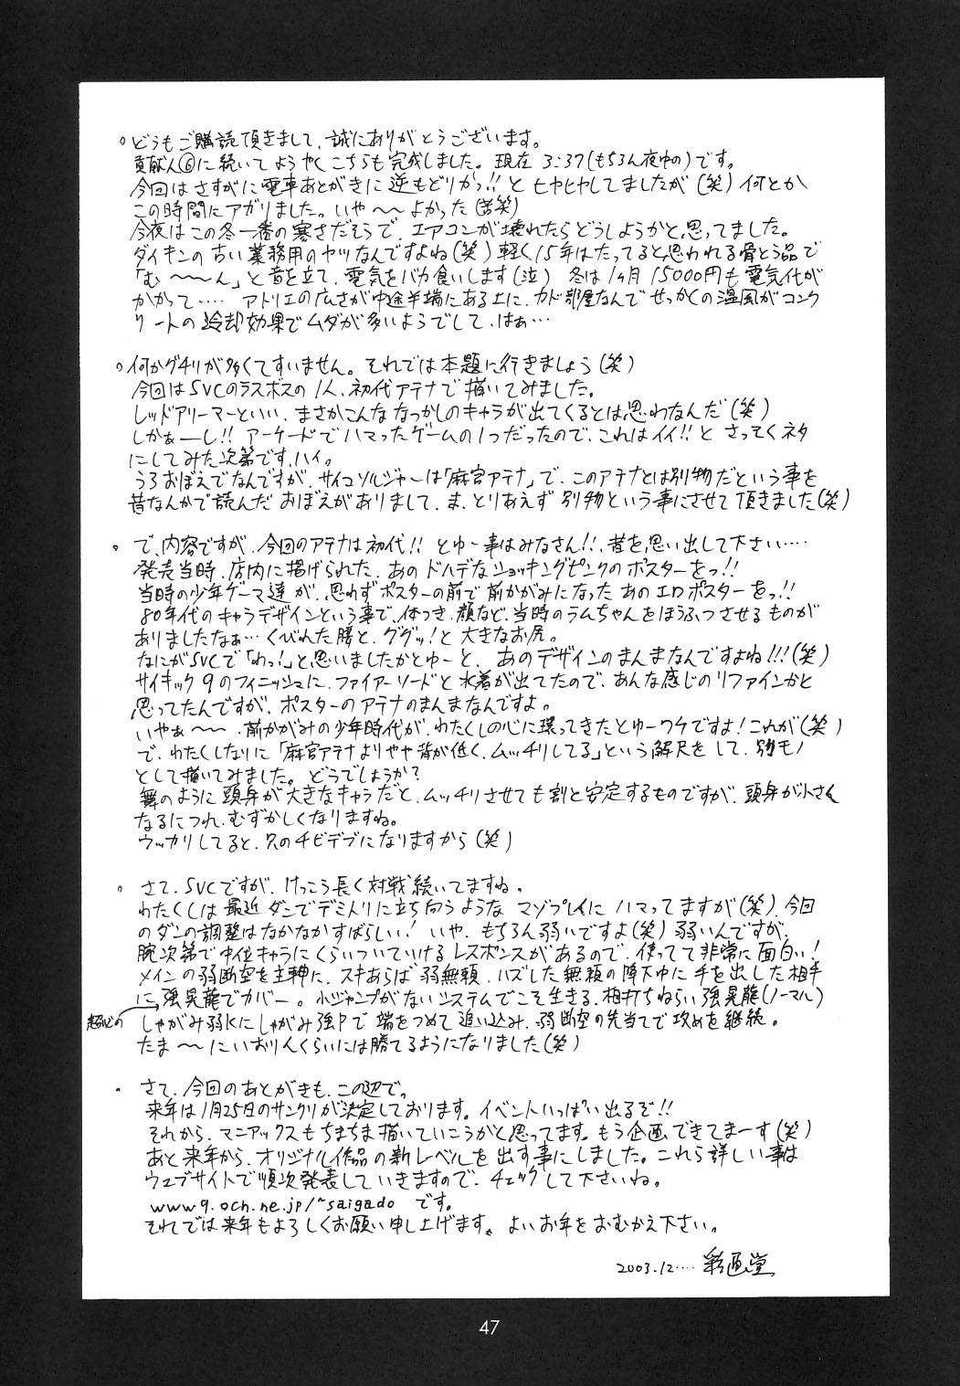 。どうもご購読頂きまして、誠にありがとうございます。
貢献人⑥に続いてようやくこちらも完成しました。現在 3:37(もちろん夜中の)です。
今回はさすがに電車あとがきに逆もどりかっ!! と ヒヤヒヤしてましたが(笑) 何とか
この時間にアガリました。いや〜〜よかった(苦笑)
今夜はこの冬一番の寒さだそうで、エアコンが壊れたらどうしようかと思ってました。
ダイキンの古い業務用のヤツなんですよね(笑) 軽く15年はたってると思われる骨とう品で
「む〜〜〜ん」と音を立て、電気をバカ食いします(泣) 冬は1ヶ月 15000円も電気代が
かかって…… アトリエの広さが中途半端にある上に、カド部屋なんでせっかくの温風がコンク
リートの冷却効果でムダが多いようでして、はぁ…
。何かグチりが多くてすいません。それでは本題に行きましょう(笑)
今回はSVCのラスボスの1人、初代アテナで描いてみました。
レッドアリーマーといい、まさかこんななつかしのキャラが出てくるとは思わなんだ(笑)
しかぁーし!! アーケードでハマったゲームの1つだったので、これはイイ!! と さってくネタ
にしてみた次第です、ハイ。
うろおぼえでなんですが、サイコソルジャーは「麻宮アテナ」で、このアテナとは別物だという事を
昔なんかで読んだおぼえがありまして、ま、とりあえず 別物という事にさせて頂きました(笑)
。で、内容ですが、今回のアテナは初代!! とゆー事はみなさん!!、昔を思い出して下さい……
発売当時、店内に掲げられた、あのドハデなショッキングピンクのポスターをっ!!
当時の少年ゲーマ達が、思わずポスターの前で前かがみになった あのエロポスターをっ!!
80年代のキャラデザインという事で、体つき、顔など、当時のラムちゃんをほうふつさせるものが
ありましたなぁ… くびれた腰と、ググッ!と大きなお尻。
なにがSVCで「わっ!」と思いましたかとゆーと、あのデザインのまんまなんですよね!!!(笑)
サイキック9のフィニッシュに、ファイアーソードと水着が出てたので、あんな感じのリファインかと
思ってたんですが、ポスターのアテナのまんまなんですよ。
いやぁ〜〜、前かがみの少年時代が、わたくしの心に還ってきたとゆーワケですよ!これが(笑)
で、わたくしなりに「麻宮アテナよりやや背が低く、ムッチリしてる」という解尺をして、別モノ
として描いてみました。どうでしょうか?
舞のように頭身が大きなキャラだと、ムッチリさせても割と安定するものですが、頭身が小さく
なるにつれ、むずかしくなりますね。
ウッカリしてると、只のチビデブになりますから(笑)
。さて、SVCですが、けっこう長く対戦続いてますね。
わたくしは最近ダンでデミトリに立ち向うようなマゾプレイにハマってますが(笑) 今回
のダンの調整はなかなかすばらしい! いや、もちろん弱いですよ(笑) 弱いんですが、
腕次第で中位キャラにくらいついていけるレスポンスがあるので、使ってて非常に面白い!
メインの弱断空を主軸に、スキあらば弱無頼、ハズした無頼の降下中に手を出した相手
に強晃龍でカバー。小ジャンプがないシステムでこそ生きる、相打ちねらい強晃龍(ノーマル)
しゃがみ弱Kにしゃがみ強Pで端をつめて追い込み、弱断空の先当てで攻めを継続。
たま〜〜にいおりんくらいには勝てるようになりました(笑)
・さて、今回のあとがきも、この辺で。
来年は1月25日のサンクリが決定しております。イベントいっぱい出るぞ!!
それから、マニアックスもちまちま描いていこうがと思ってます。もう企画できてまーす(笑)
あと来年から、オリジナル作品の新レーベルを出す事にしました。これら詳しい事は
ウェブサイトで順次発表していきますので、チェックして下さいね。
www9.och.ne.jp/~saigado です。
それでは来年もよろしくお願い申し上げます。よいお年をおむかえ下さい。
2003.12…. 彩画堂
47